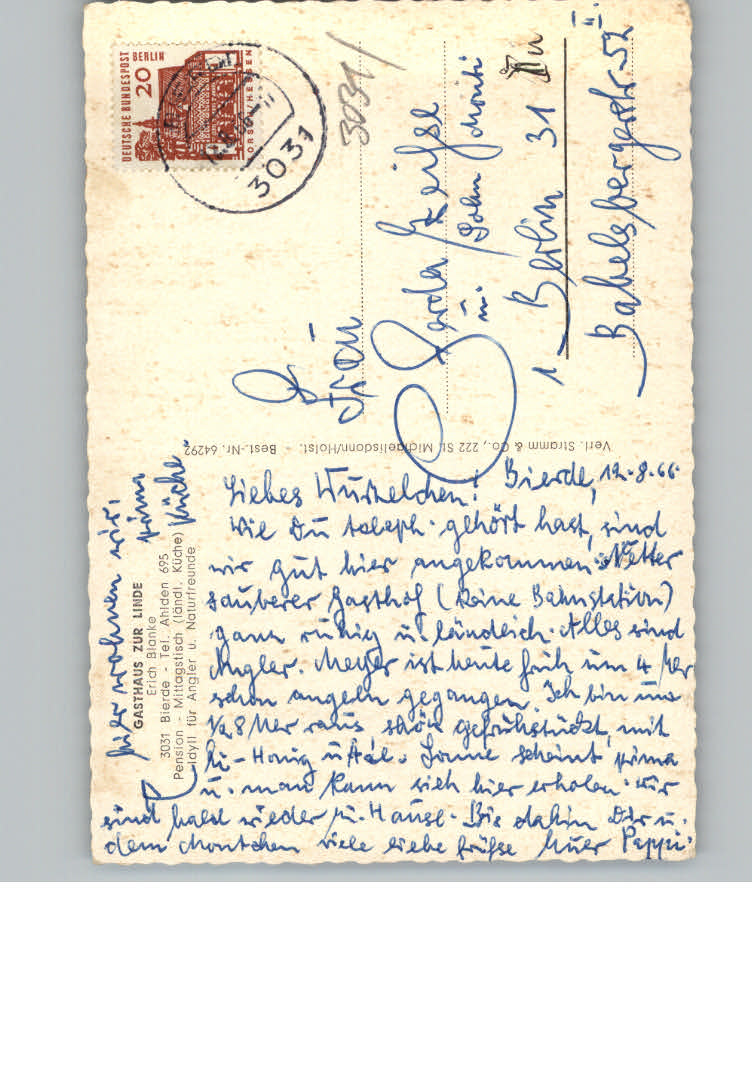 Hier wohnen wir,
prima
Küche
GASTHAUS ZUR LINDE
Erich Blanke
3031 Bierde - Tel. Ahlden 695
Pension - Mittagstisch (ländl. Küche)
Idyll für Angler u. Naturfreunde
Bierde, 12.8.66
Liebes Wurzelchen!
Wie Du teleph. gehört hast, sind
wir gut hier angekommen. Netter
sauberer Gasthof (keine Bahnstation)
ganz ruhig u. ländlich. Alles sind
Angler. Meyer ist heute früh um 4 Uhr
schon angeln gegangen. Ich bin um
½ 8 Uhr raus schön gefrühstückt, mit
Honig u. Aal. Sonne scheint prima
u. man kann sich hier erholen. Wir
sind bald wieder zu Hause. Bis dahin Dir u.
dem Montchen viele liebe Grüße Euer Peppi.
Verl. Stramm & Co., 222 St. Michaelisdonn/Holst. Best.-Nr. 64292
DEUTSCHE BUNDESPOST BERLIN
20
LORSCH/HESSEN
3031
3031
Frau
Gerda
u. Sohn Monti
1 Berlin 31
Babelsbergerstr. 52
II